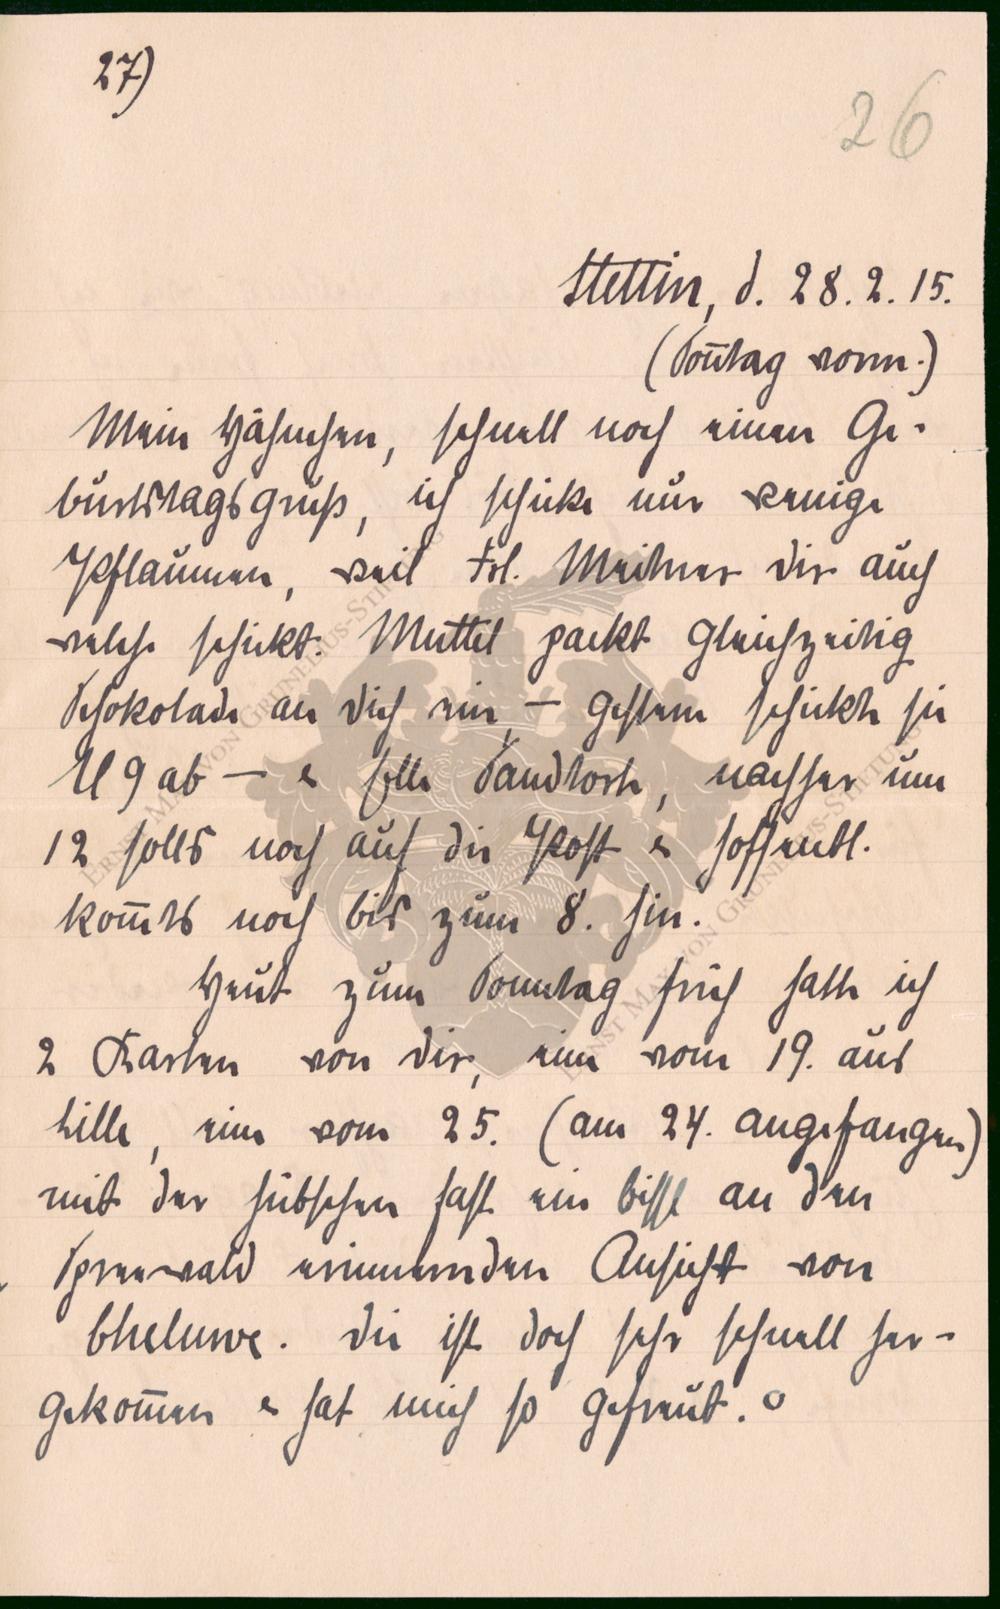 27)
26
Stettin, d. 28. 2. 15.
(Sonntag vorm.)
Mein Hähnchen, schnell noch einen Ge-
burtstagsgruß, ich schicke nur wenige
Pflaumen, weil Frl. Meihner dir auch
welche schickt. Muttel packt gleichzeitig
Schokolade an dich ein, – gestern schickte sie
U 9 ab – e Sandtorte, nachher um
12 solls noch auf die Post e hoffentl.
kom̄ts noch bis zum 8. hin.
Heut zum Sonntag früh hatte ich
2 Karten von dir, eine vom 19. aus
Lille, eine vom 25. (am 24. angefangen)
mit der hübschen fast ein bissl an den
Spreewald erinnernden Ansicht von
. die ist doch sehr schnell her-
gekom̄en e hat mich so gefreut.
ERNST MAX VON GRUNELIUS-STIFTUNG
ERNST MAX VON GRUNELIUS-STIFTUNG